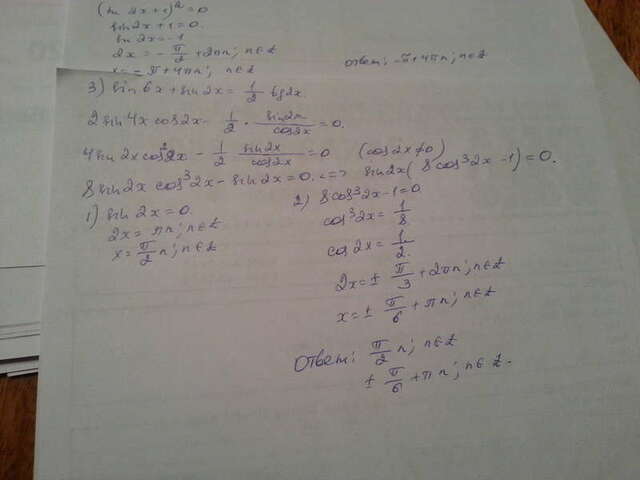 (sin 2x + 1)² = 0
sin 2x + 1 = 0.
sin 2x = -1
2x = - π/2 + 2πn; n∈Z
x = - π + 4πn; n∈Z
Ответ: -π + 4πn; n∈Z
3) sin 6x + sin 2x = 1/2 tg 2x.
2 sin 4x cos 2x - 1/2 · sin 2x / cos 2x = 0.
4 sin 2x cos² 2x - 1/2 sin 2x / cos 2x = 0 (cos 2x ≠ 0)
8 sin 2x cos³ 2x - sin 2x = 0. <=> sin 2x ( 8 cos³ 2x - 1) = 0.
1) sin 2x = 0.
2x = πn; n∈Z
x = π/2 n; n∈Z
2) 8 cos³ 2x - 1 = 0
cos³ 2x = 1/8
cos 2x = 1/2.
2x = ± π/3 + 2πn; n∈Z
x = ± π/6 + πn; n∈Z
Ответ: π/2 n; n∈Z
± π/6 + πn; n∈Z.